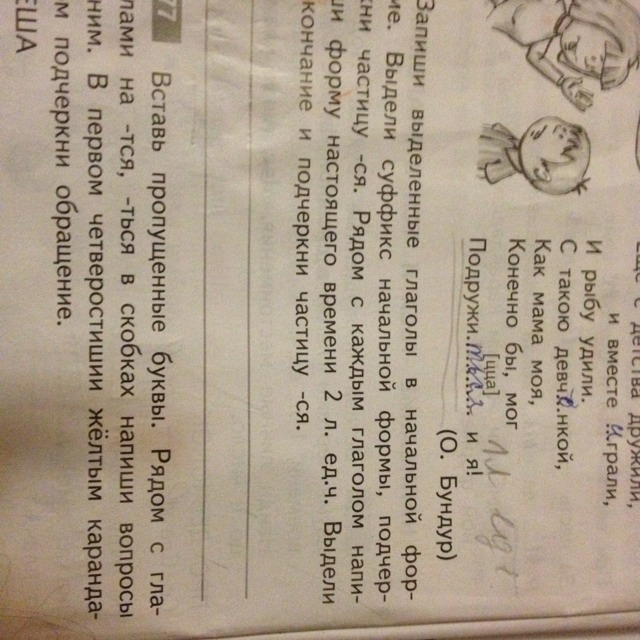 с детства дружили,
и вместе играли,
И рыбу удили.
С такою девчонкой,
Как мама моя,
Конечно бы, мог
[цца]
Подружи.ться и я!
(О. Бундур)
Запиши выделенные глаголы в начальной фор-
ме. Выдели суффикс начальной формы, подчер-
кни частицу -ся. Рядом с каждым глаголом напи-
ши форму настоящего времени 2 л. ед.ч. Выдели
окончание и подчеркни частицу -ся.
77 Вставь пропущенные буквы. Рядом с гла-
лами на -тся, -ться в скобках напиши вопросы
ним. В первом четверостишии жёлтым каранда-
м подчеркни обращение.
ЕША